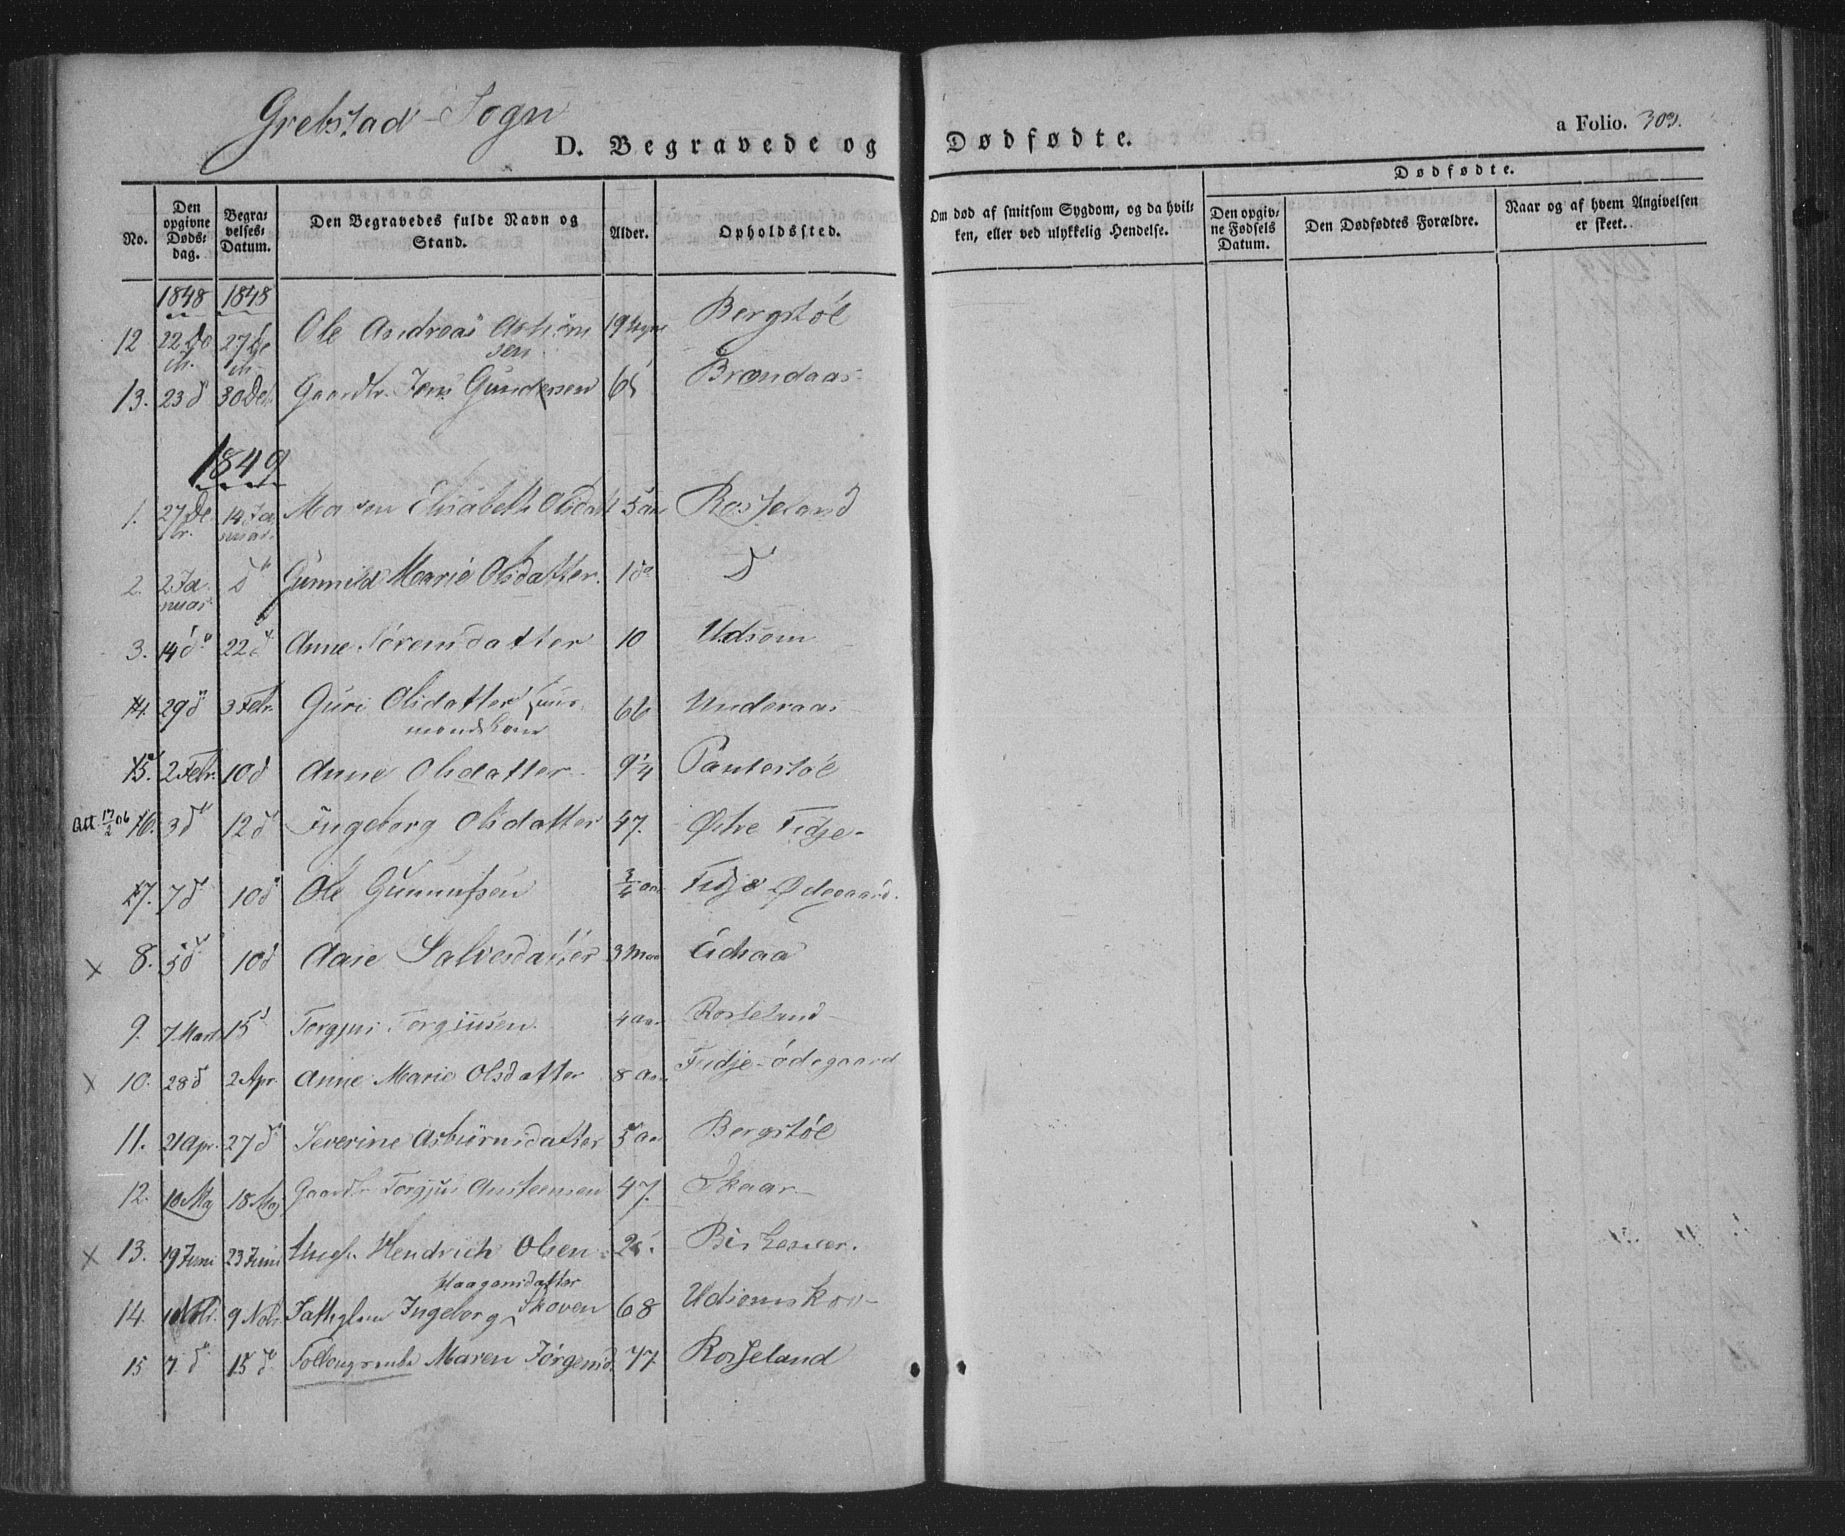 Grebstad Sogn
D. Begravede og Dødfødte.
a Folio. 303.
No.
Den opgivne Døds-dag.
Begra-velses-Datum.
Den Begravedes fulde Navn og Stand.
Alder.
Opholdssted.
Om død af smitsom Sygdom, og da hvil-ken, eller ved ulykkelig Hendelse.
Dødfødte.
Den opgiv-ne Fødsels Datum.
Den Dødfødtes Forældre.
Naar og af hvem Angivelsen er skeet.
1848 1848
12 22 27 Ole Andreas 19 Bergstøl
sen
13. 23 d 30 Gaardbr. Jens Gundersen 65 Brændaas
1849
1. 27 De 14 Ja Maren Elisabeth Olsdatt 5 aar Rosseland
br. nuar.
2. 2 Ja d Gunnild Marie Olsdatter 1 d d
nuar
3. 14 d 22 d Anne Sørensdatter 10 Udsom
4. 29 d 3 Febr. Guri Olsdatter Huus 66 Underaas
mandskone
5. 2 Febr. 10 d Anne Olsdatter 9 1/4 Pantestøl
Att 17/2 06 6. 3 d 12 d Ingeborg Olsdatter 47. Østre Fidje
7. 7 d 10 d Ole Gunnufsen 3/4 aar Fidje Ødegaard.
x 8. 5 d 10 d Aase Salvesdatter 3 Eidsaa
9. 7 Marts 15 d Torgjus Torgiusen 4 aar Rosseland
x 10. 28 d 2 Apr. Anne Marie Olsdatter 8 aar Fidje-ødegaard
11. 21 Apr. 27 d Severine Asbiørnsdatter 5 aar Bergstøl
12. 10 Maj 18 Maj Gaardbr Torgjus Austeensen 47. Skaar
x 13. 19 Juni 23 Juni Ungk. Hendrich Olsen 25. Birkener.
Haagensdatter
14. 1 Nobr. 9 Nobr. Fattiglem Ingeborg Skoven 68 Udsomskov
15 7 d 15 d Maren Jørgensd 77. Rosseland